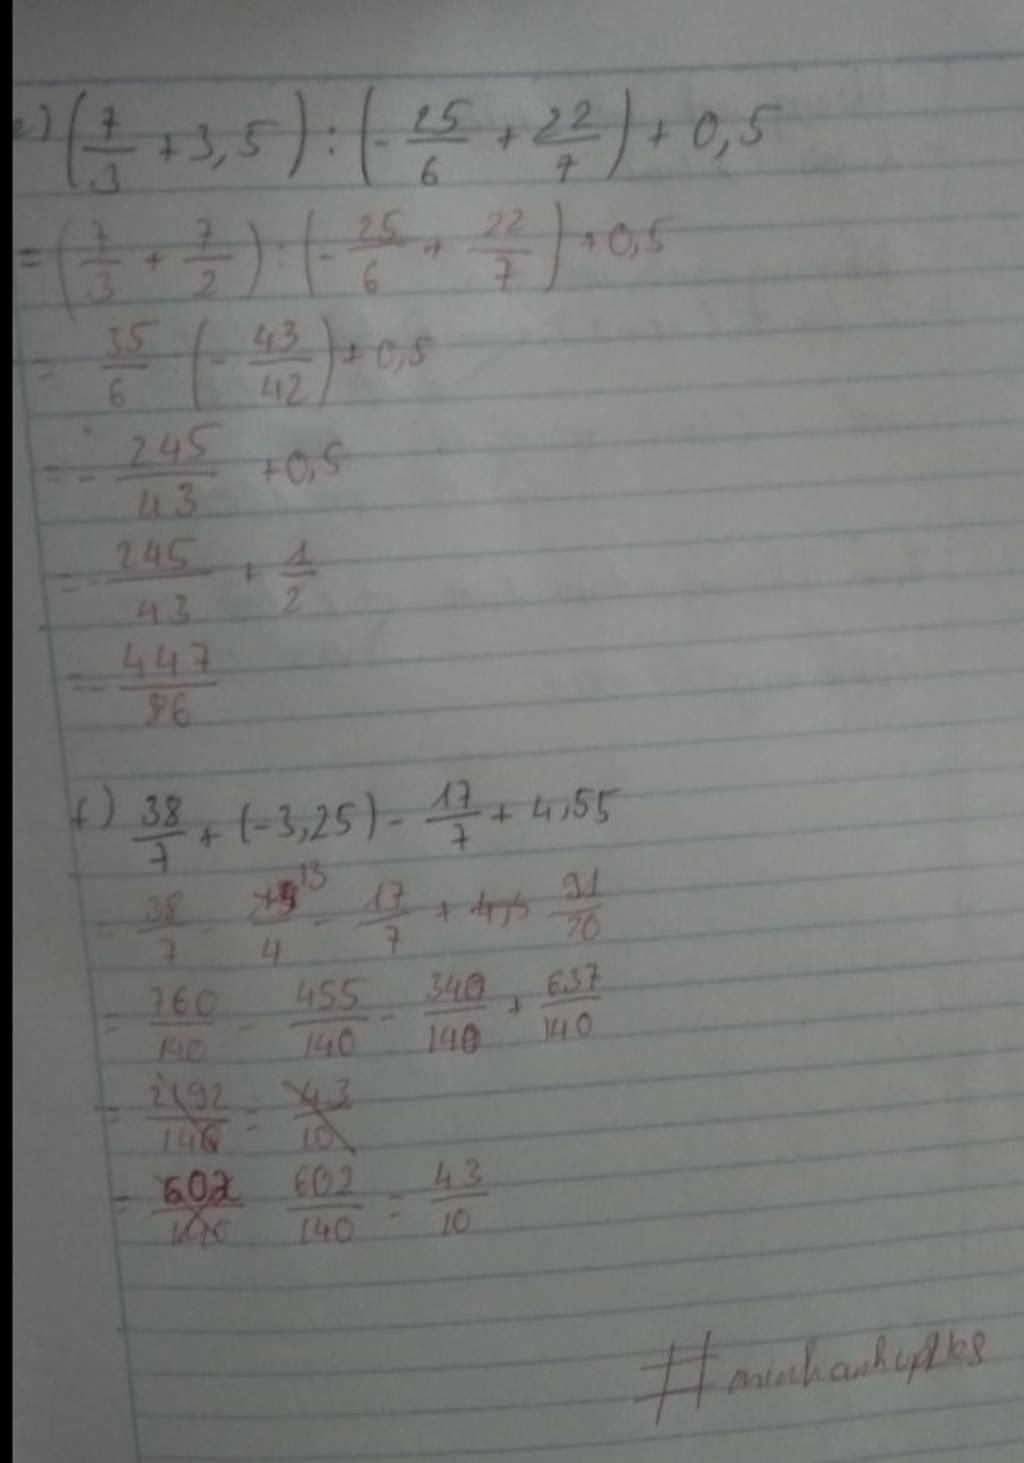 e) (7/3 + 3,5) : (-25/6 + 22/7) + 0,5
= (7/3 + 7/2) : (-25/6 + 22/7) + 0,5
= 35/6 : (-43/42) + 0,5
= -245/43 + 0,5
= -245/43 + 1/2
= -447/86
f) 38/7 + (-3,25) - 17/7 + 4,55
= 38/7 - 13/4 - 17/7 + 91/20
= 760/140 - 455/140 - 340/140 + 637/140
= 2192/140 = 43/10
= 602/140 602/140 = 43/10